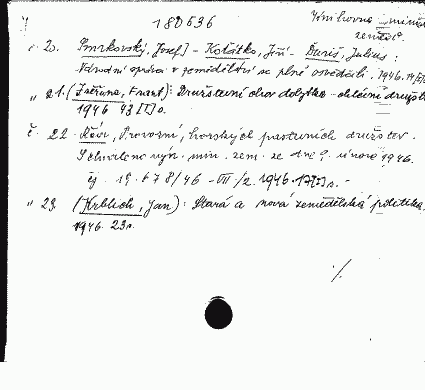 180636
Knihovna minist
zeměd.
č. 20. Smrkovský, Josef - Koťátko, Jiří - Ďuriš, Julius:
Národní správa v zemědělství se plně osvědčila. 1946.
" 21. ( , Frant): Družstevní chov dobytka - družst
1946 43 [I] s.
č. 22. Řád, Provozní, horských pastevních družstev.
Schváleno výn. min. zem. ze dne 9. února 1946.
čj. 19.678/46 - VII/2. 1946. 17[I] s. -
" 23. (Krblich, Jan): Stará a nová zemědělská politika.
1946. 23 s.